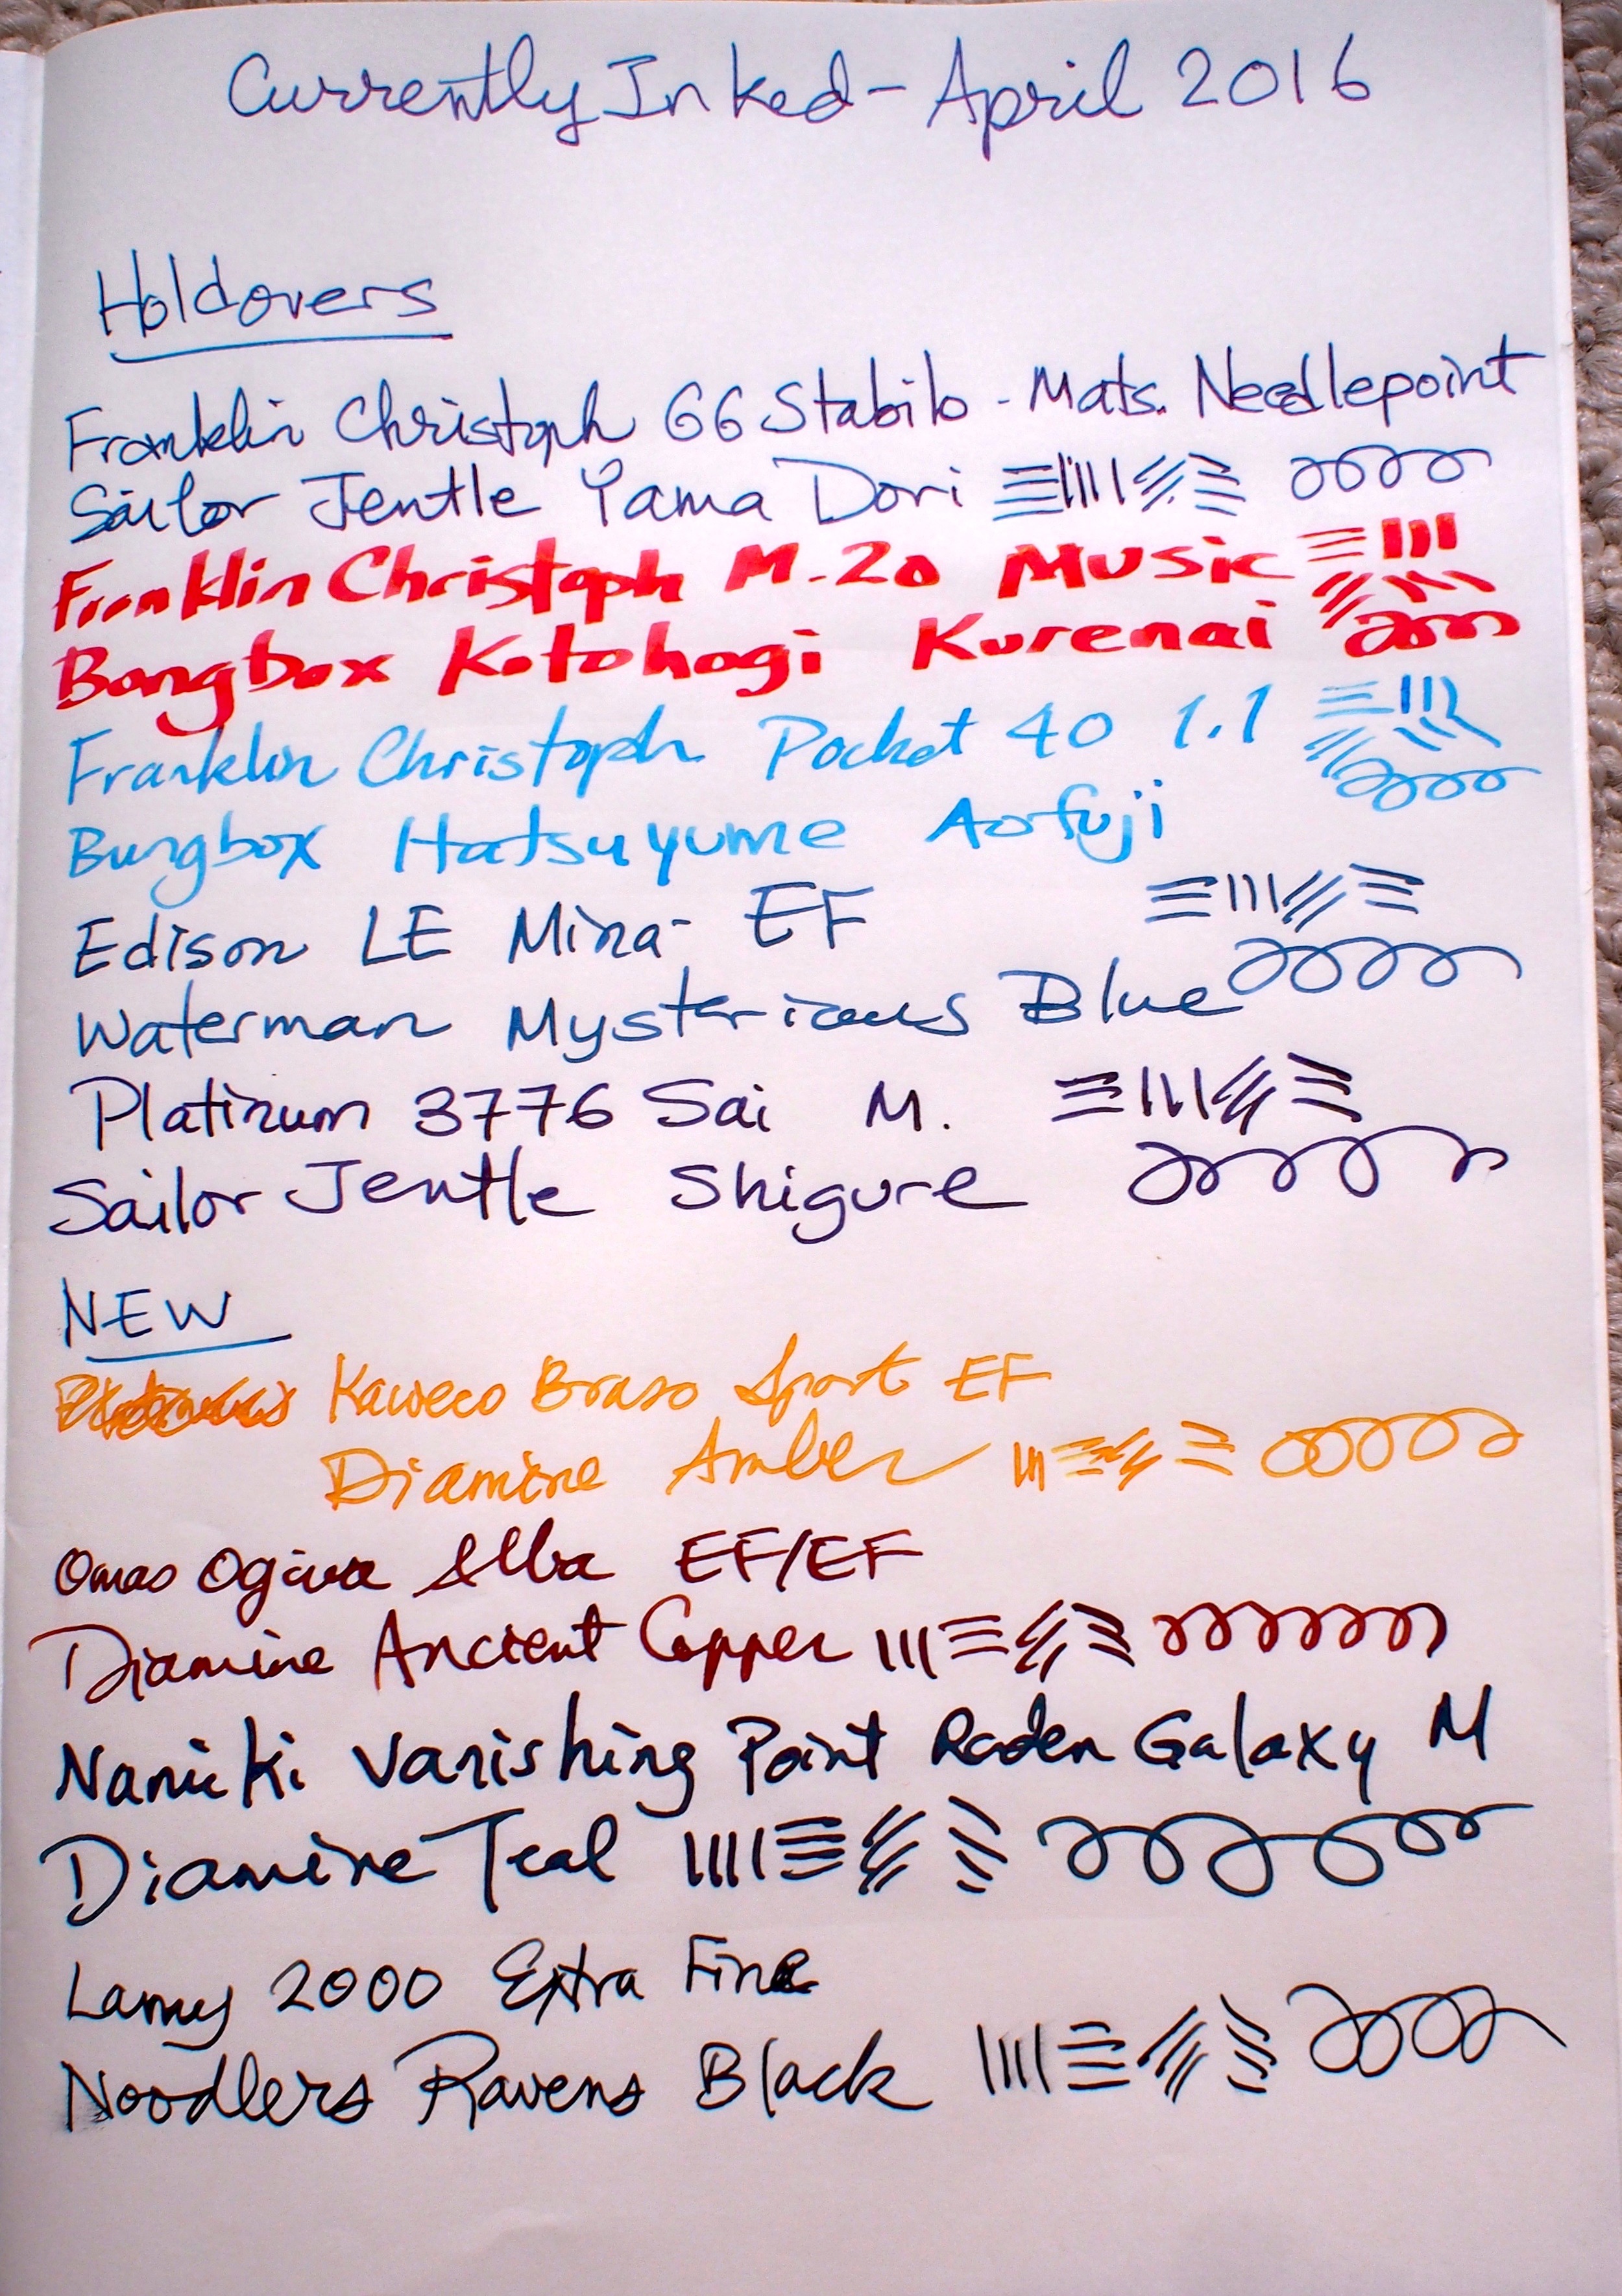 Currently Inked - April 2016
Holdovers
Franklin Christoph 66 Stabilo - Mats. Needlepoint
Sailor Jentle Yama Dori
Franklin Christoph M.20 Music
Bungbox Kotohogi Kurenai
Franklin Christoph Pocket 40 1.1
Bungbox Hatsuyume Aofuji
Edison LE Mina - EF
Waterman Mysterious Blue
Platinum 3776 Sai M.
Sailor Jentle Shigure
NEW
Kaweco Brass Sport EF
Diamine Amber
Omas Ogiva Alba EF/EF
Diamine Ancient Copper
Namiki Vanishing Point Raden Galaxy M
Diamine Teal
Lamy 2000 Extra Fine
Noodlers Ravens Black